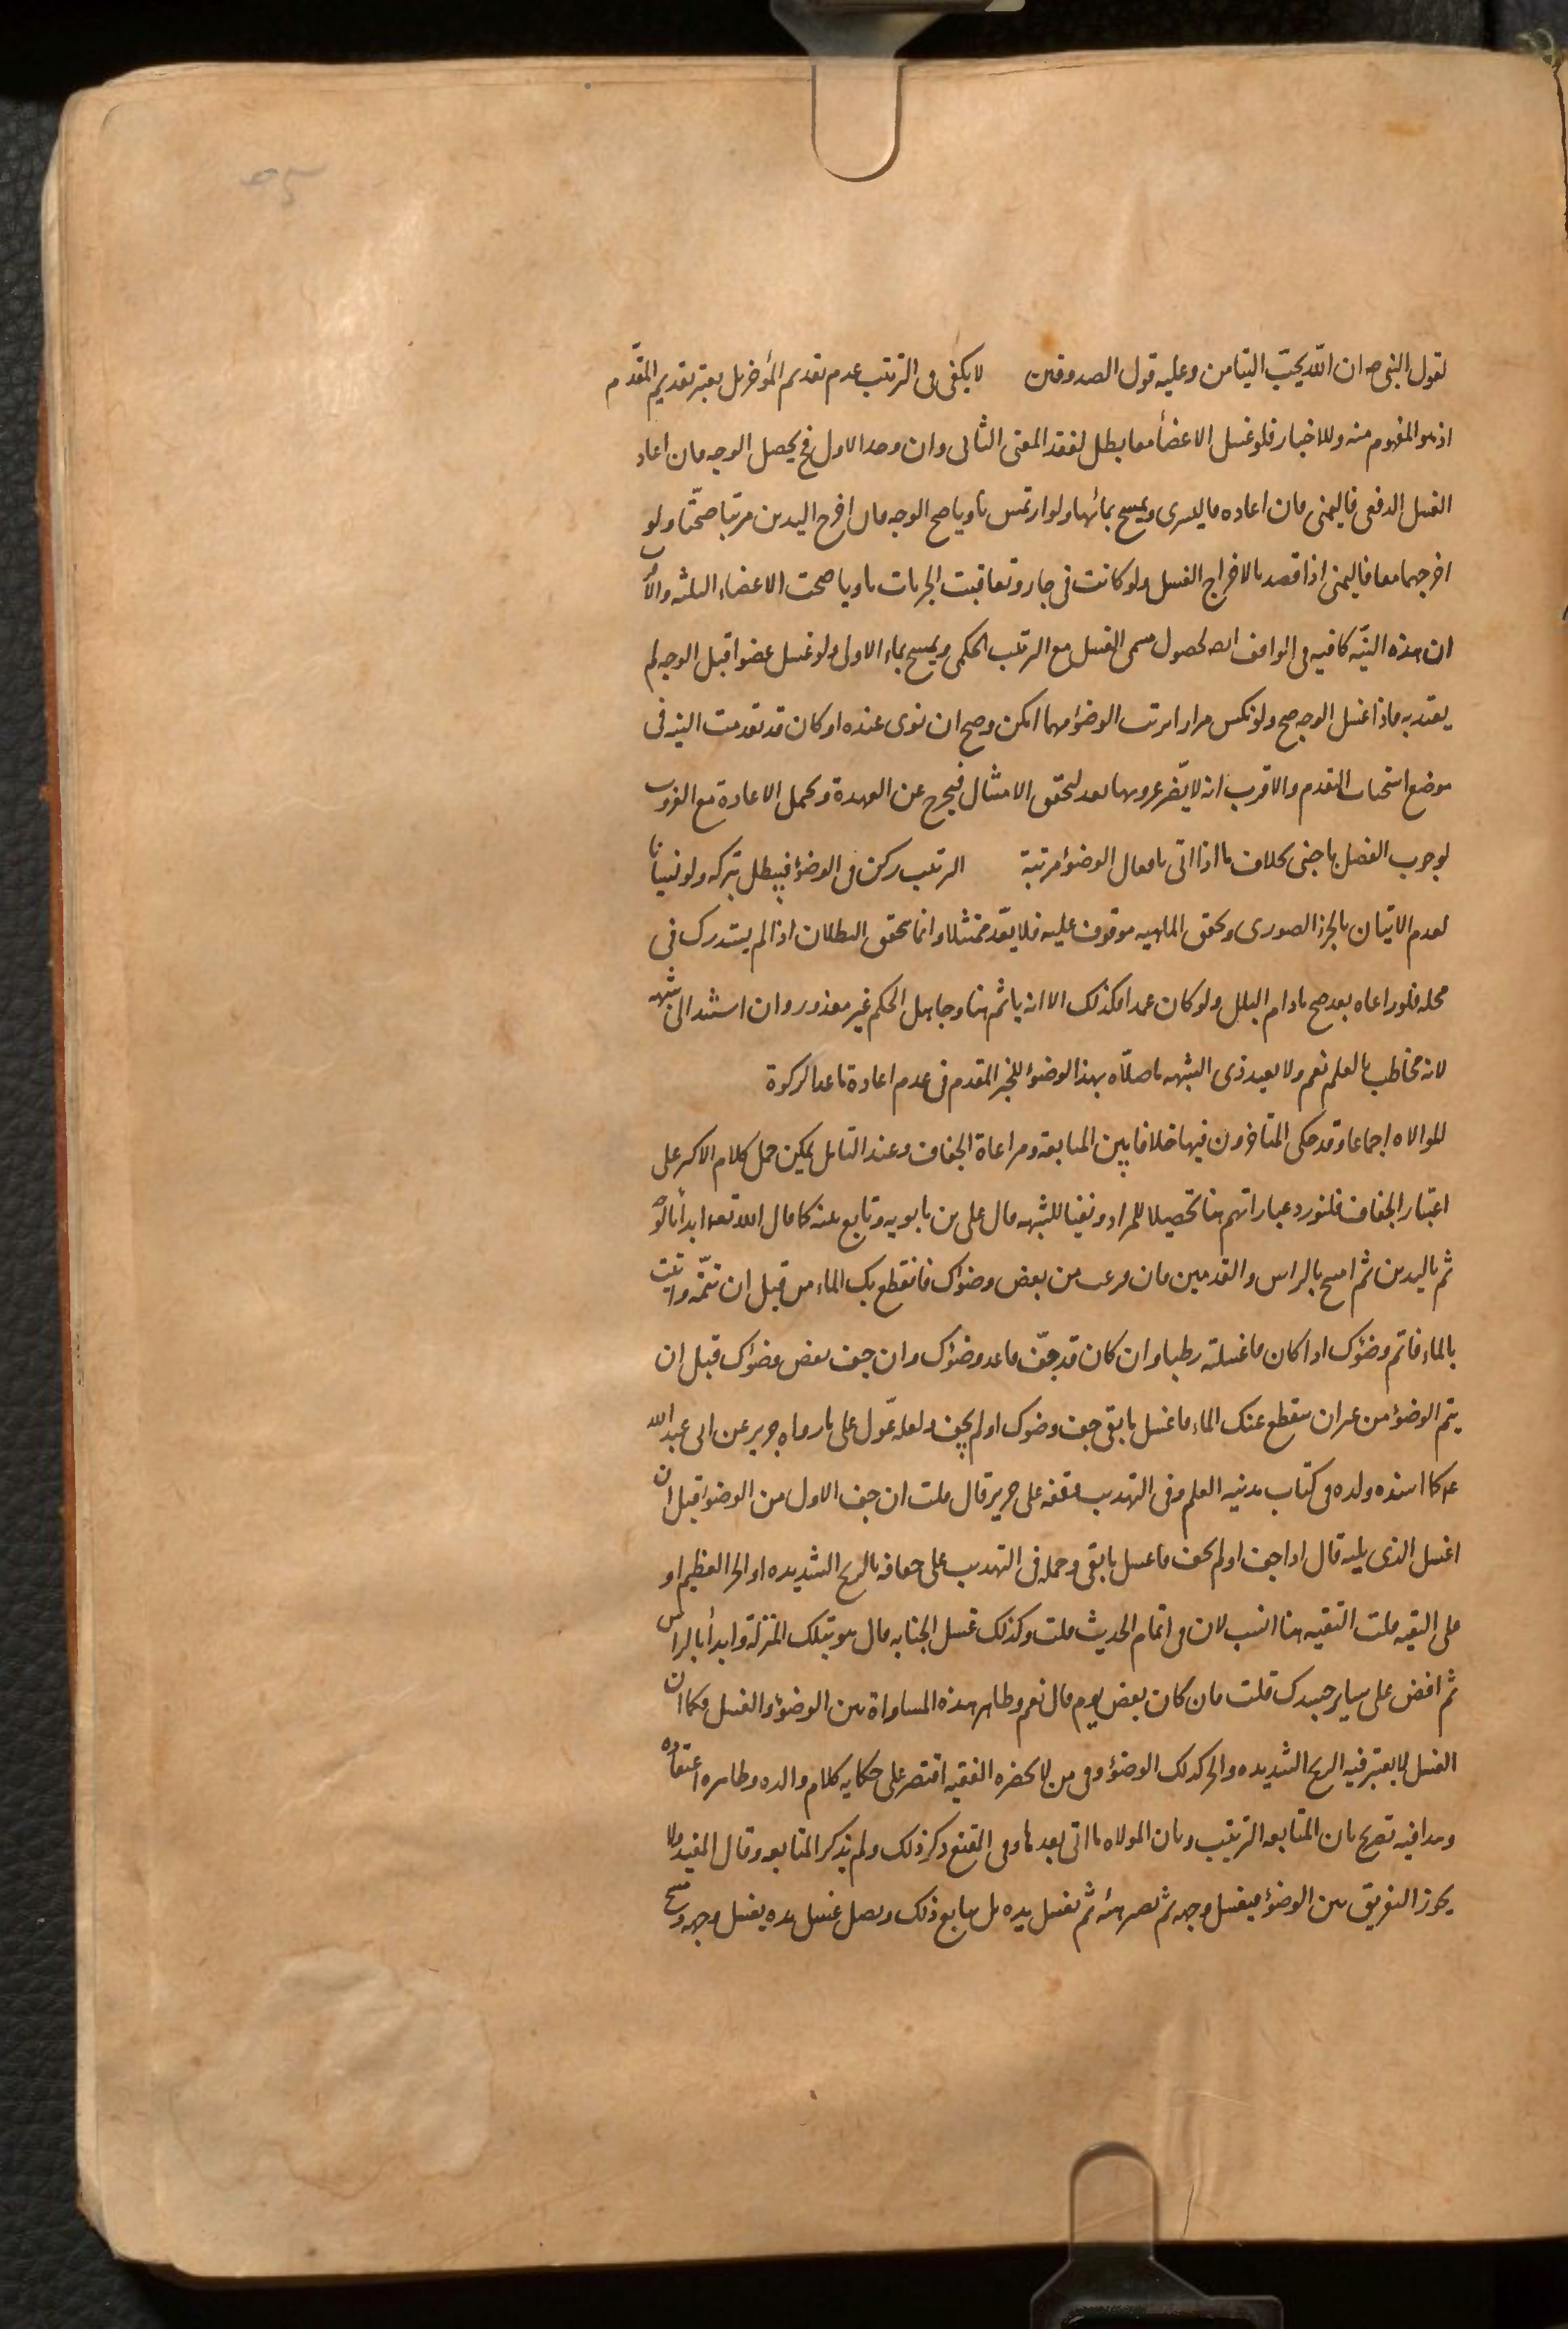 لقول النبى صه ان الله يحبّ التيامن وعليه قول الصدوقين لا يكفى فى الترتيب عدم تقديم المؤخر بل يعتبر تقديم المقدّم
اذ هو المفهوم منه وللاخبار فلو غسل الاعضاء معا بطل لفقد المعنى الثانى وان وجد الاول فح يحصل الوجه فان اعاد
الغسل الدفعى فاليمنى فان اعاده فاليسرى ويمسح بمائها ولو ارتمس ناويا صح الوجه فان اخرج اليدين مرتبا صحّتا ولو
اخرجهما معا فاليمنى اذا قصد بالاخراج الغسل ولو كانت فى جار وتعاقبت الجريات ناويا صحت الاعضاء الثلثه والاقرب
ان هذه النيّه كافيه فى الواقف ايضا لحصول مسمى الغسل مع الترتيب الحكمى ويمسح بماء الاولى ولو غسل عضوا قبل الوجه لم
يعتد به فاذا غسل الوجه صح ولو نكس مرارا ترتب الوضؤ مهما امكن وصح ان نوى عنده او كان قد تقدمت النيه فى
موضع استحباب التقدم والاقرب انه لا يضّر عزوبها بعد لتحقق الامتثال فيخرج عن العهدة ويحتمل الاعادة مع العزوب
لوجوب الفصل باجنبى بخلاف ما اذا اتى بافعال الوضؤ مرتبة الترتيب ركن فى الوضؤ فيبطل بتركه ولو نسيانا
لعدم الاتيان بالجزء الصورى وتحقق الماهيه موقوف عليه فلا يعّد ممتثلا وانما تحقق البطلان اذا لم يستدرك فى
محله فلو راعاه بعد صح مادام البلل ولو كان عمدا فكذلك الا انه ياثم هنا وجاهل الحكم غير معذور وان استند الى شبهه
لانه مخاطب بالعلم نعم ولا يعيد ذى الشبهه ما صلّاه بهذا الوضؤ للخبر المقدم فى عدم اعادة ما عدا الزكوة
الموالاه اجماعا وقد حكى المتاخرون فيها خلافا بين المتابعة ومراعاة الجفاف وعند التامل يمكن حمل كلام الاكثر على
اعتبار الجفاف فلنورد عباراتهم هنا تحصيلا للمراد ونفيا للشبهه قال على بن بابويه وتابع بينه كما قال الله تعه ابدأ بالوجه
ثم باليدين ثم امسح بالراس والقدمين فان فرغت من بعض وضؤك فانقطع بك الماء من قبل ان تتمّه واتيت
بالماء فاتم وضؤك اذا كان ما غسلته رطبا وان كان قد جفّ فاعد وضؤك وان جف بعض وضؤك قبل ان
يتم الوضؤ من غير ان ينقطع عنك الماء فاغسل ما بقى جف وضوك او لم يجف ولعله عّول على ما رواه حريز عن ابى عبد الله
ع كما اسنده ولده فى كتاب مدينه العلم وفى التهذيب وقفه على حريز قال قلت ان جف الاول من الوضوء قبل ان
اغسل الذى يليه قال اذا جف او لم يجف فاغسل ما بقى وحمله فى التهذيب على جفافه بالريح الشديده او الحر العظيم او
على التقيه قلت التقيه هنا انسب لان فى تمام الحديث قلت وكذلك غسل الجنابه قال هو بتلك المنزلة وابدأ بالراس
ثم افض على ساير جسدك قلت فان كان بعض يوم قال نعم وظاهر هذه المساواة بين الوضؤ والغسل فكما ان
الغسل لا يعتبر فيه الريح الشديده والحر كذلك الوضؤ وفى من لا يحضره الفقيه اقتصر على حكايه كلام والده وظاهره اعتقاده
وهذا فيه تصريح بان المتابعه الترتيب وبان المولاه ما اتى بعدها وفى المقنع ذكر ذلك ولم يذكر المتابعه وقال المفيد ولا
يجوز التفريق بين الوضؤ فيغسل وجهه ثم يصبر هنئه ثم يغسل يده بل يتابع ذلك ويصل غسل يده بغسل وجهه ومسح